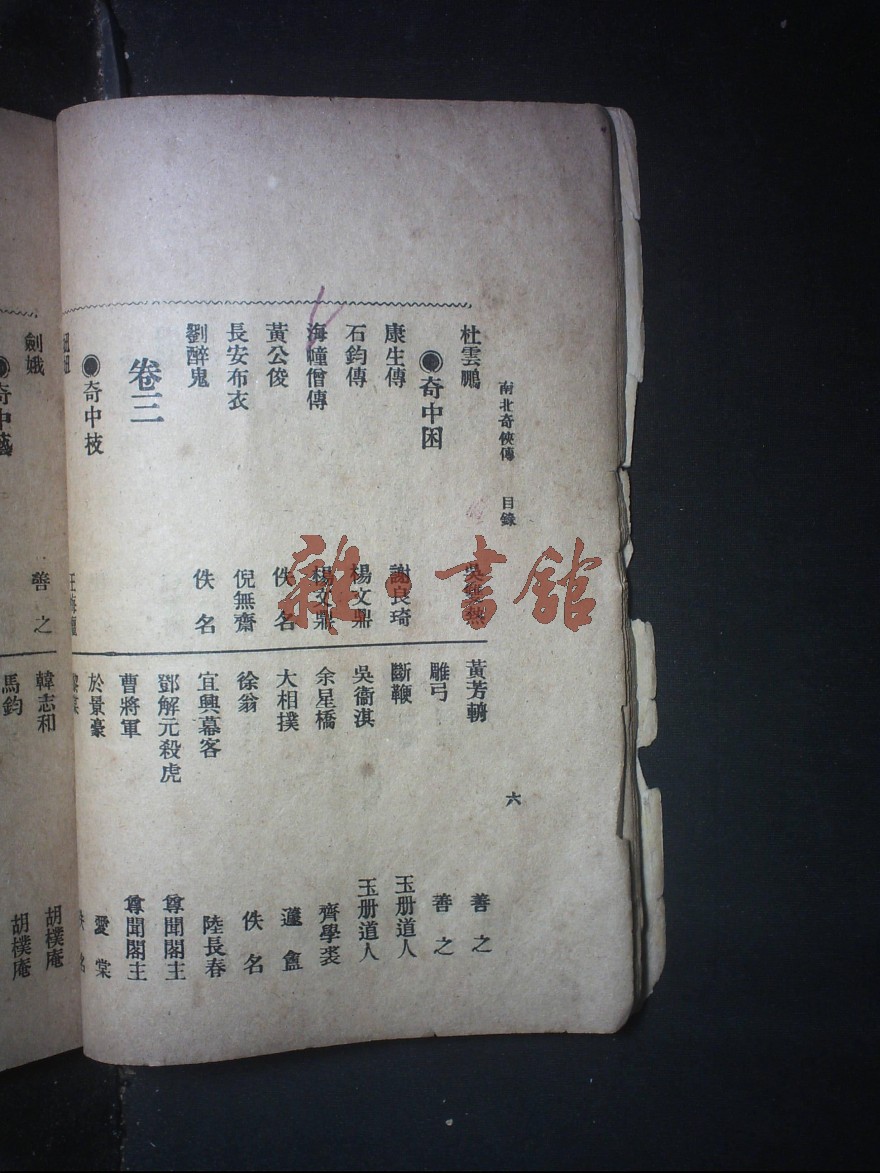 南北奇俠傳 目錄 六
杜雲鵬
●奇中困
康生傳 謝良琦
石鈞傳 楊文鼎
海幢僧傳 楊文鼎
黃公俊 佚名
長安布衣 倪無齋
劉醉鬼 佚名
卷三
●奇中技
黃芳 善之
雕弓 善之
斷鞭 玉册道人
吳衞淇 玉册道人
余星橋 齊學裘
大相撲 蘧盦
徐翁 佚名
宜興幕客 陸長春
鄧解元殺虎 尊聞閣主
曹將軍 尊聞閣主
於景豪 愛棠
佚名
劍娥 善之
●奇中藝
韓志和 胡樸庵
馬鈞 胡樸庵
雜·書館